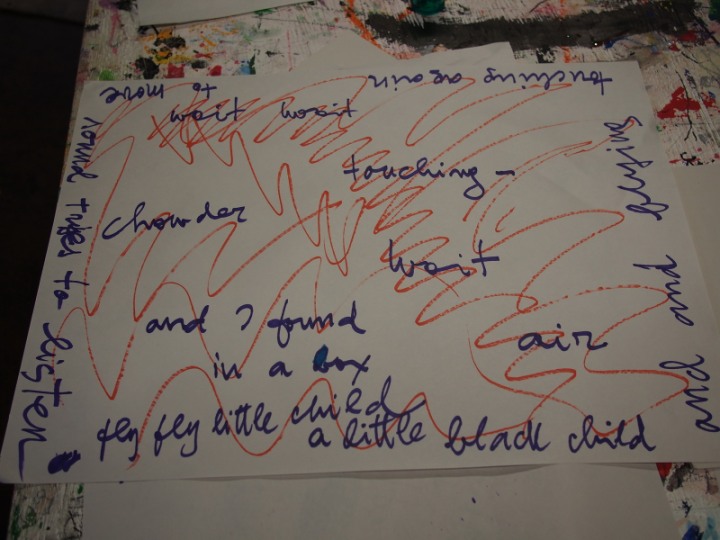 touching again
to move
wait wait
touching –
chowder
wait
air
and I found
in a box
fly fly little child
a little black child
to listen
and